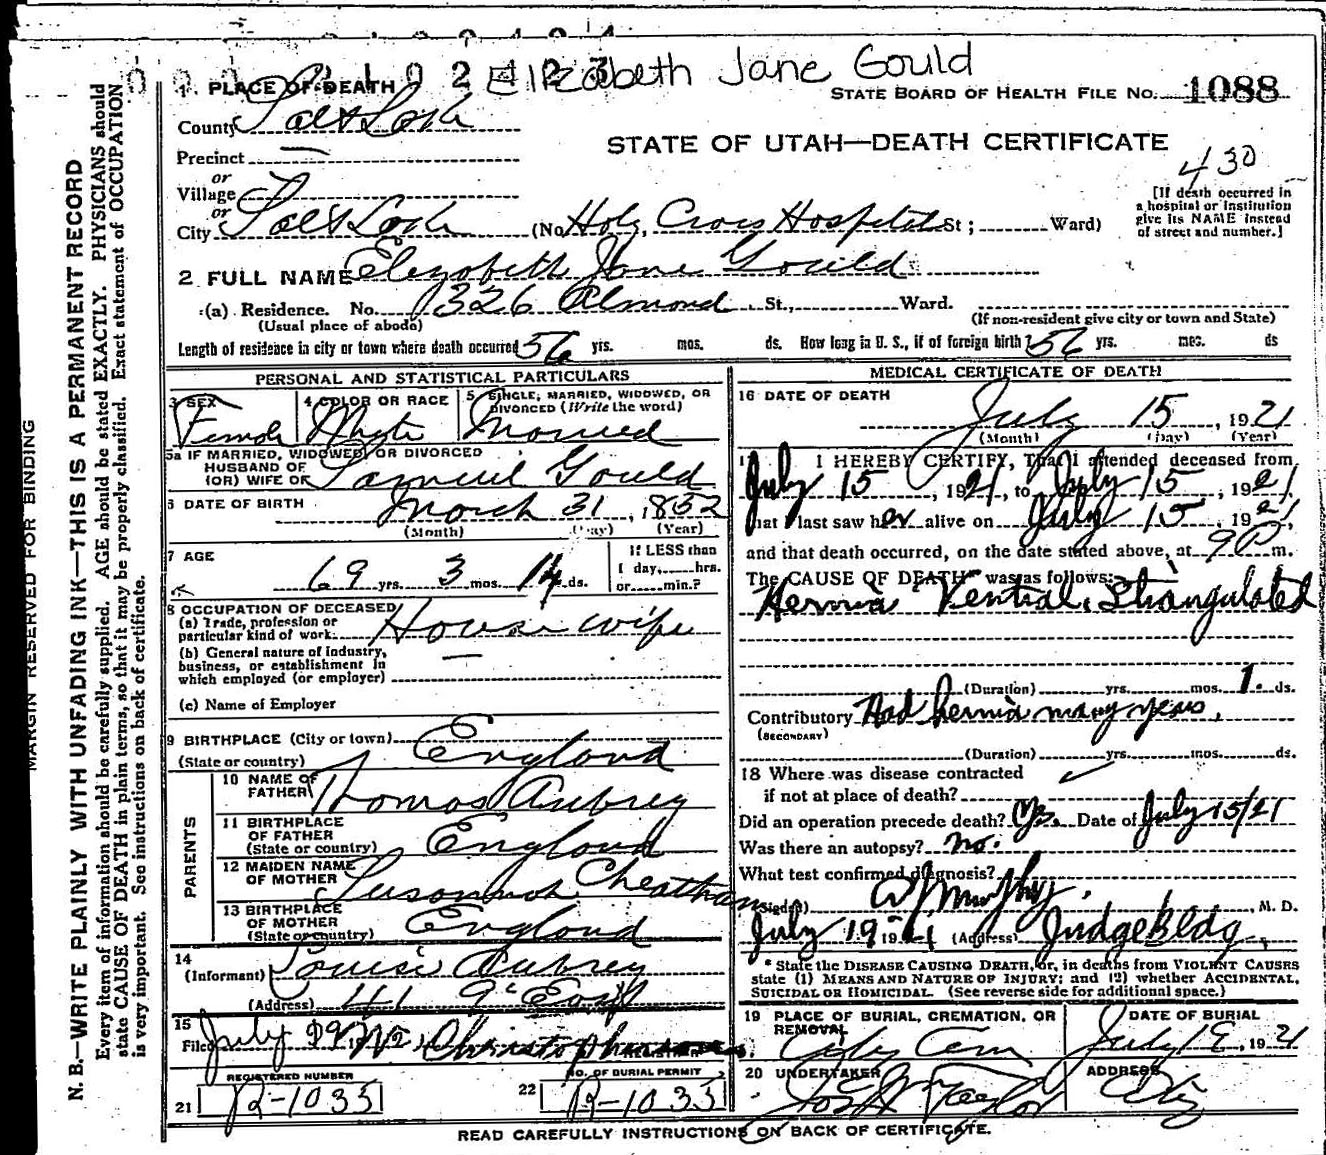 Elizabeth Jane Gould
1 PLACE OF DEATH
STATE BOARD OF HEALTH FILE No. 1088
County Salt Lake
STATE OF UTAH—DEATH CERTIFICATE
Precinct —
430
or
Village
or
City Salt Lake (No. Holy Cross Hospital St ; Ward)
[If death occurred in
a hospital or institution
give its NAME instead
of street and number.]
2 FULL NAME Elizabeth Jane Gould
(a) Residence. No. 326 Almond St., Ward.
(Usual place of abode) (If non-resident give city or town and State)
Length of residence in city or town where death occurred 56 yrs. mos. ds. How long in U. S., if of foreign birth? 56 yrs. mos. ds
PERSONAL AND STATISTICAL PARTICULARS
3 SEX Female
4 COLOR OR RACE White
5 SINGLE, MARRIED, WIDOWED, OR
DIVORCED (Write the word) Married
5a IF MARRIED, WIDOWED, OR DIVORCED
HUSBAND OF
(OR) WIFE OF Samuel Gould
6 DATE OF BIRTH March 31, 1852
(Month) (Day) (Year)
7 AGE 69 yrs. 3 mos. 14 ds.
If LESS than
1 day,......hrs.
or......min.?
8 OCCUPATION OF DECEASED
(a) Trade, profession or
particular kind of work Housewife
(b) General nature of industry,
business, or establishment in
which employed (or employer) —
(c) Name of Employer
9 BIRTHPLACE (City or town)
(State or country) England
PARENTS
10 NAME OF
FATHER Thomas Aubrey
11 BIRTHPLACE
OF FATHER
(State or country) England
12 MAIDEN NAME
OF MOTHER Susannah Cheatham
13 BIRTHPLACE
OF MOTHER
(State or country) England
14
(Informant) Louise Aubrey
(Address) 41 9th East
15
Filed July Christophers
REGISTRAR
REGISTERED NUMBER
21 R-1035
NO. OF BURIAL PERMIT
22 R-1035
MEDICAL CERTIFICATE OF DEATH
16 DATE OF DEATH
July 15, 1921
(Month) (Day) (Year)
17 I HEREBY CERTIFY, That I attended deceased from
July 15, 1921, to July 15, 1921,
that I last saw her alive on July 15, 1921,
and that death occurred, on the date stated above, at 9 P m.
The CAUSE OF DEATH* was as follows:
Hernia Ventral, Strangulated
(Duration) yrs. mos. 1. ds.
Contributory Had hernia many years,
(SECONDARY)
(Duration) yrs. mos. ds.
18 Where was disease contracted
if not at place of death?
Did an operation precede death? Yes. Date of July 15/21
Was there an autopsy? no.
What test confirmed diagnosis?
(Signed) Murphy, M. D.
July 19 1921 (Address) Judge Bldg,
* State the DISEASE CAUSING DEATH, or, in deaths from VIOLENT CAUSES
state (1) MEANS AND NATURE OF INJURY; and (2) whether ACCIDENTAL,
SUICIDAL OR HOMICIDAL. (See reverse side for additional space.)
19 PLACE OF BURIAL, CREMATION, OR
REMOVAL City Cem
DATE OF BURIAL
July 19, 1921
20 UNDERTAKER Jos Taylor
ADDRESS City
READ CAREFULLY INSTRUCTIONS ON BACK OF CERTIFICATE.
MARGIN RESERVED FOR BINDING
N. B.—WRITE PLAINLY WITH UNFADING INK—THIS IS A PERMANENT RECORD
Every item of information should be carefully supplied. AGE should be stated EXACTLY. PHYSICIANS should
state CAUSE OF DEATH in plain terms, so that it may be properly classified. Exact statement of OCCUPATION
is very important. See instructions on back of certificate.